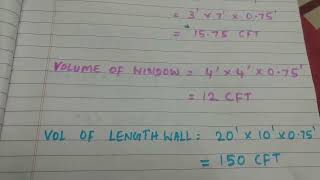 = 3' x 7' x 0.75'
= 15.75 CFT
VOLUME OF WINDOW = 4' x 4' x 0.75'
= 12 CFT
VOL OF LENGTH WALL: 20' x 10' x 0.75'
= 150 CFT